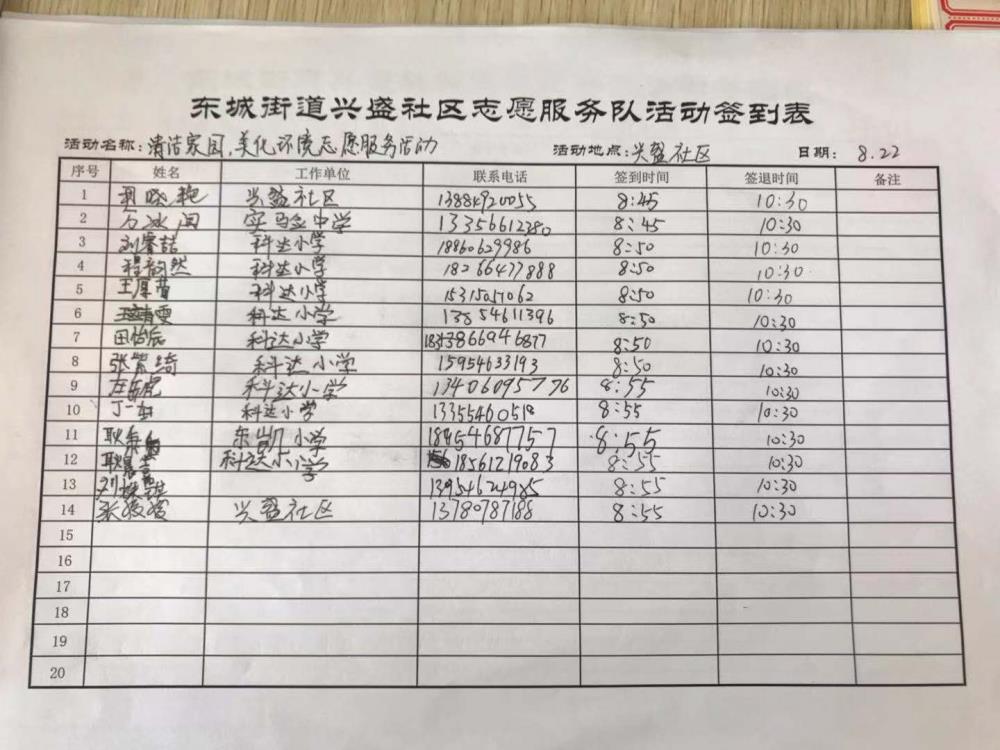 东城街道兴盛社区志愿服务队活动签到表
活动名称:清洁家园,美化环境志愿服务活动 活动地点:兴盛社区 日期: 8.22
序号 姓名 工作单位 联系电话 签到时间 签退时间 备注
1 晓艳 兴盛社区 13886920055 8:45 10:30
2 万冰闰 实验中学 13356612380 8:45 10:30
3 刘睿喆 科达小学 18860629986 8:50 10:30
4 程韵然 科达小学 18266477888 8:50 10:30
5 王厚 科达小学 15315057062 8:50 10:30
6 科达小学 13854611396 8:50 10:30
7 田怡辰 科达小学 13866946877 8:50 10:30
8 张紫绮 科达小学 15954633193 8:50 10:30
9 科达小学 13406095776 8:55 10:30
10 丁一 科达小学 13355460518 8:55 10:30
11 耿 东凯小学 18954687757 8:55 10:30
12 耿 科达小学 18561219083 8:55 10:30
13 刘 13954624985 8:55 10:30
14 张 兴盛社区 13780787188 8:55 10:30
15
16
17
18
19
20